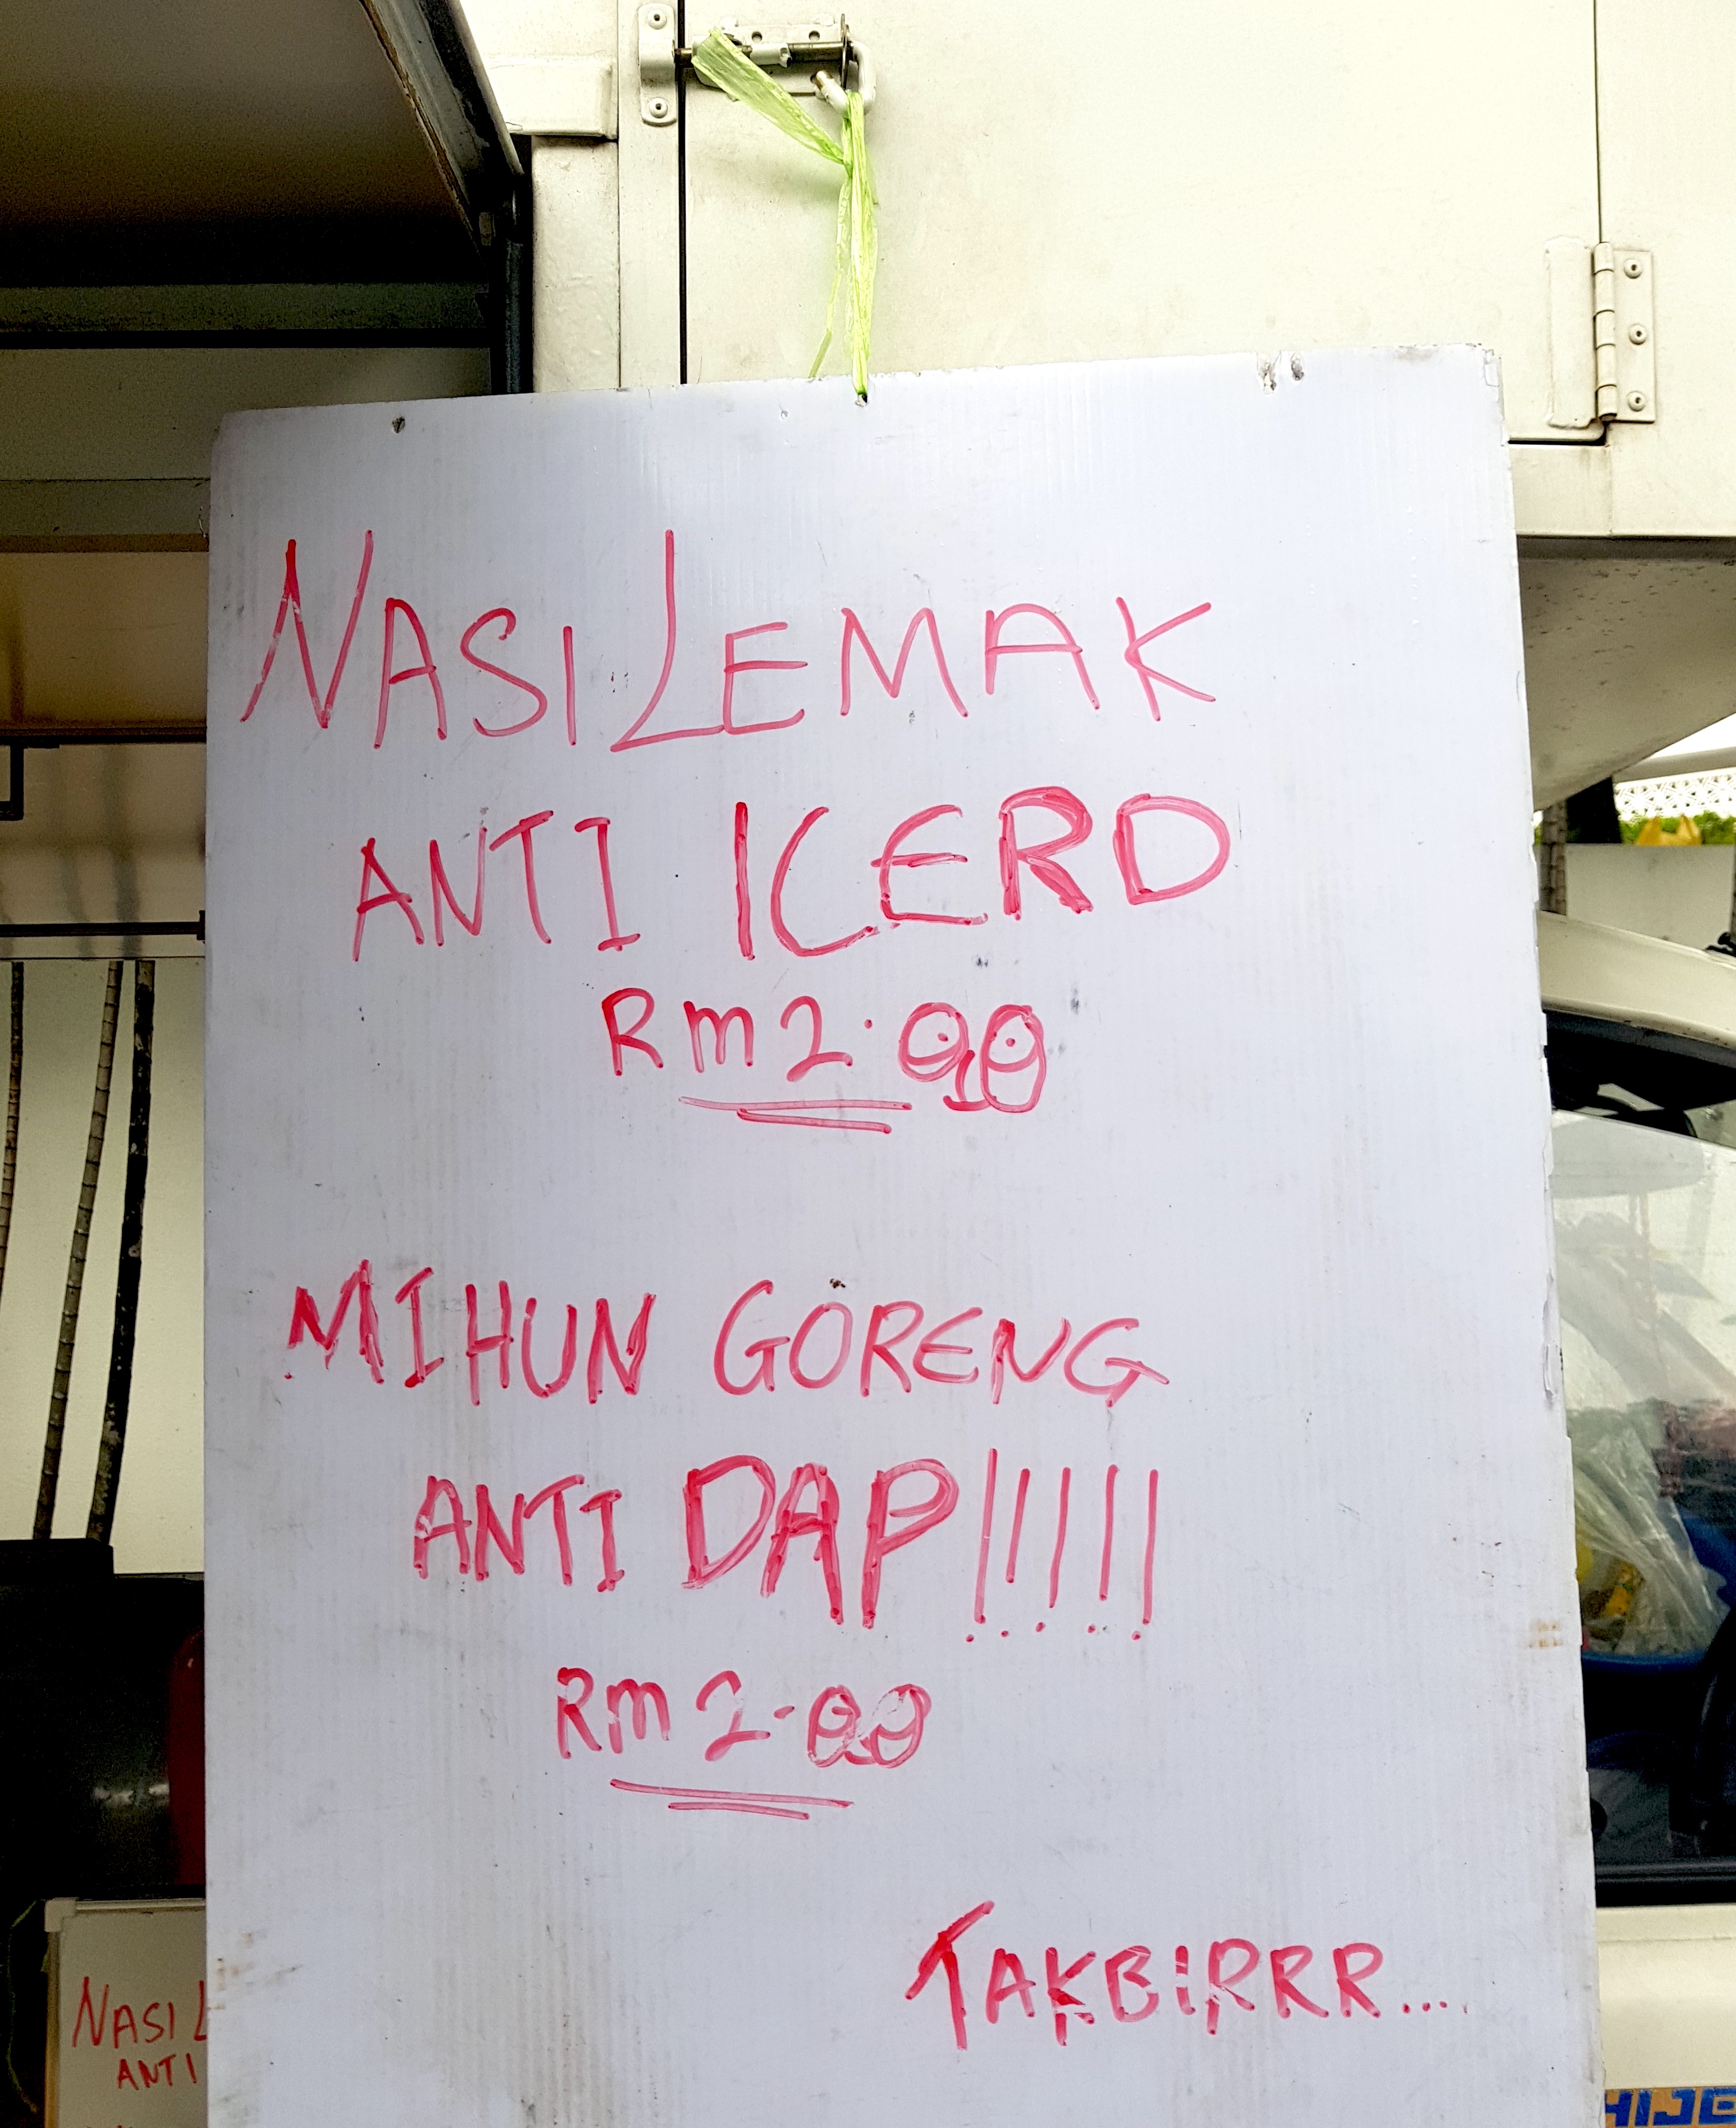 NASI LEMAK
ANTI ICERD
RM 2.00
MIHUN GORENG
ANTI DAP!!!!!
RM 2-00
TAKBIRRR....
NASI L
ANTI
HIJE